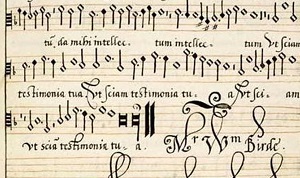 tū, da mihi intellec. tum intellec. tum Vt sciam
testimonia tua Vt sciam testimonia tu. a Vt sci. am
vt sciā testimonia tu. a. Mr Wm Birde.